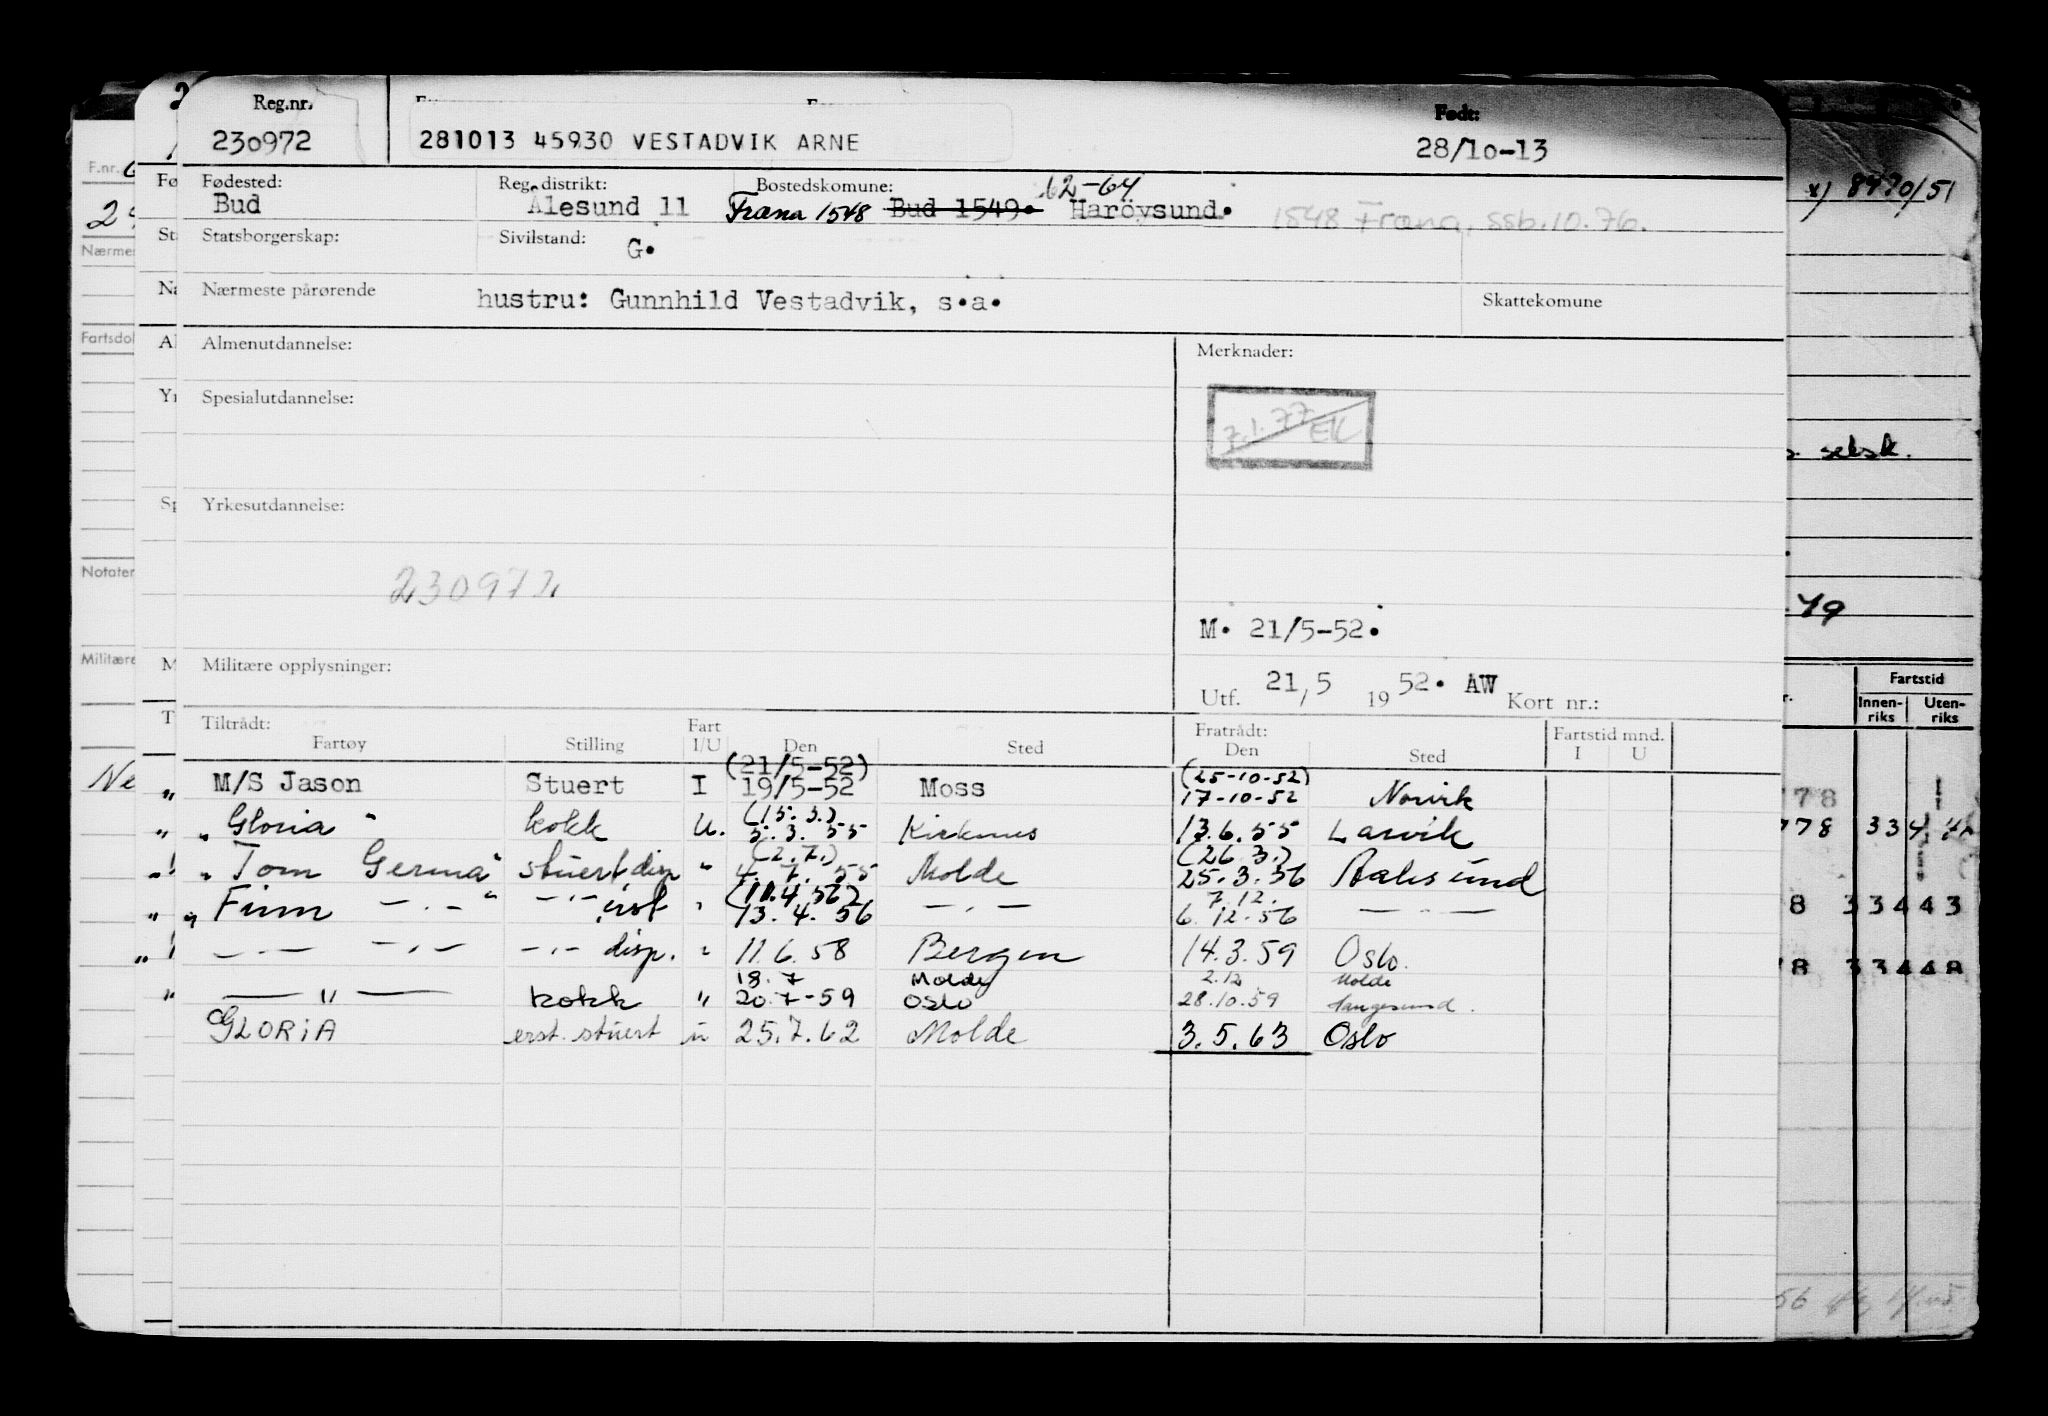 Reg.nr.
230972
281013 45930 VESTADVIK ARNE
Født:
28/10-13
F.nr.
x) 8470/51
Fødested:
Bud
Reg. distrikt:
Ålesund 11
Bostedskomune:
Fræna 1548 Bud 1549. Haröysund.
62-64
1548 Fræna, ssb.10.76.
Statsborgerskap:
Sivilstand:
G.
Nærmeste pårørende
hustru: Gunnhild Vestadvik, s.a.
Skattekomune
Almenutdannelse:
Merknader:
7.1.77 EK
Spesialutdannelse:
selsk.
Yrkesutdannelse:
230972
M. 21/5-52.
Militære opplysninger:
Utf. 21/5 1952. AW Kort nr.:
Tiltrådt:
Fartøy
Stilling
Fart
I/U
Den
Sted
Fratrådt:
Den
Sted
Fartstid mnd.
I U
Fartstid
Innen-
riks
Uten-
riks
(21/5-52) (25-10-52)
" M/S Jason Stuert I 19/5-52 Moss 17-10-52 Norvik
(15.3.)
" " Gloria " kokk U. 5.3.55 Kirkenes 13.6.55 Larvik
(2.7.) (26.3.)
" " Tom Germa " stuert disp " 4.7.55 Molde 25.3.56 Aalesund
(11.4.56) 7.12.
" " Finn -.-" -.- " 13.4.56 -.- 6.12.56 -.-
" -.- -.- -.- disp. " 11.6.58 Bergen 14.3.59 Oslo.
18.7 Molde 2.12 Molde
" — " — kokk " 20.7-59 Oslo 28.10.59 Haugesund.
GLORIA erst. stuert u 25.7.62 Molde 3.5.63 Oslo
778 334
8 334 43
78 334 48